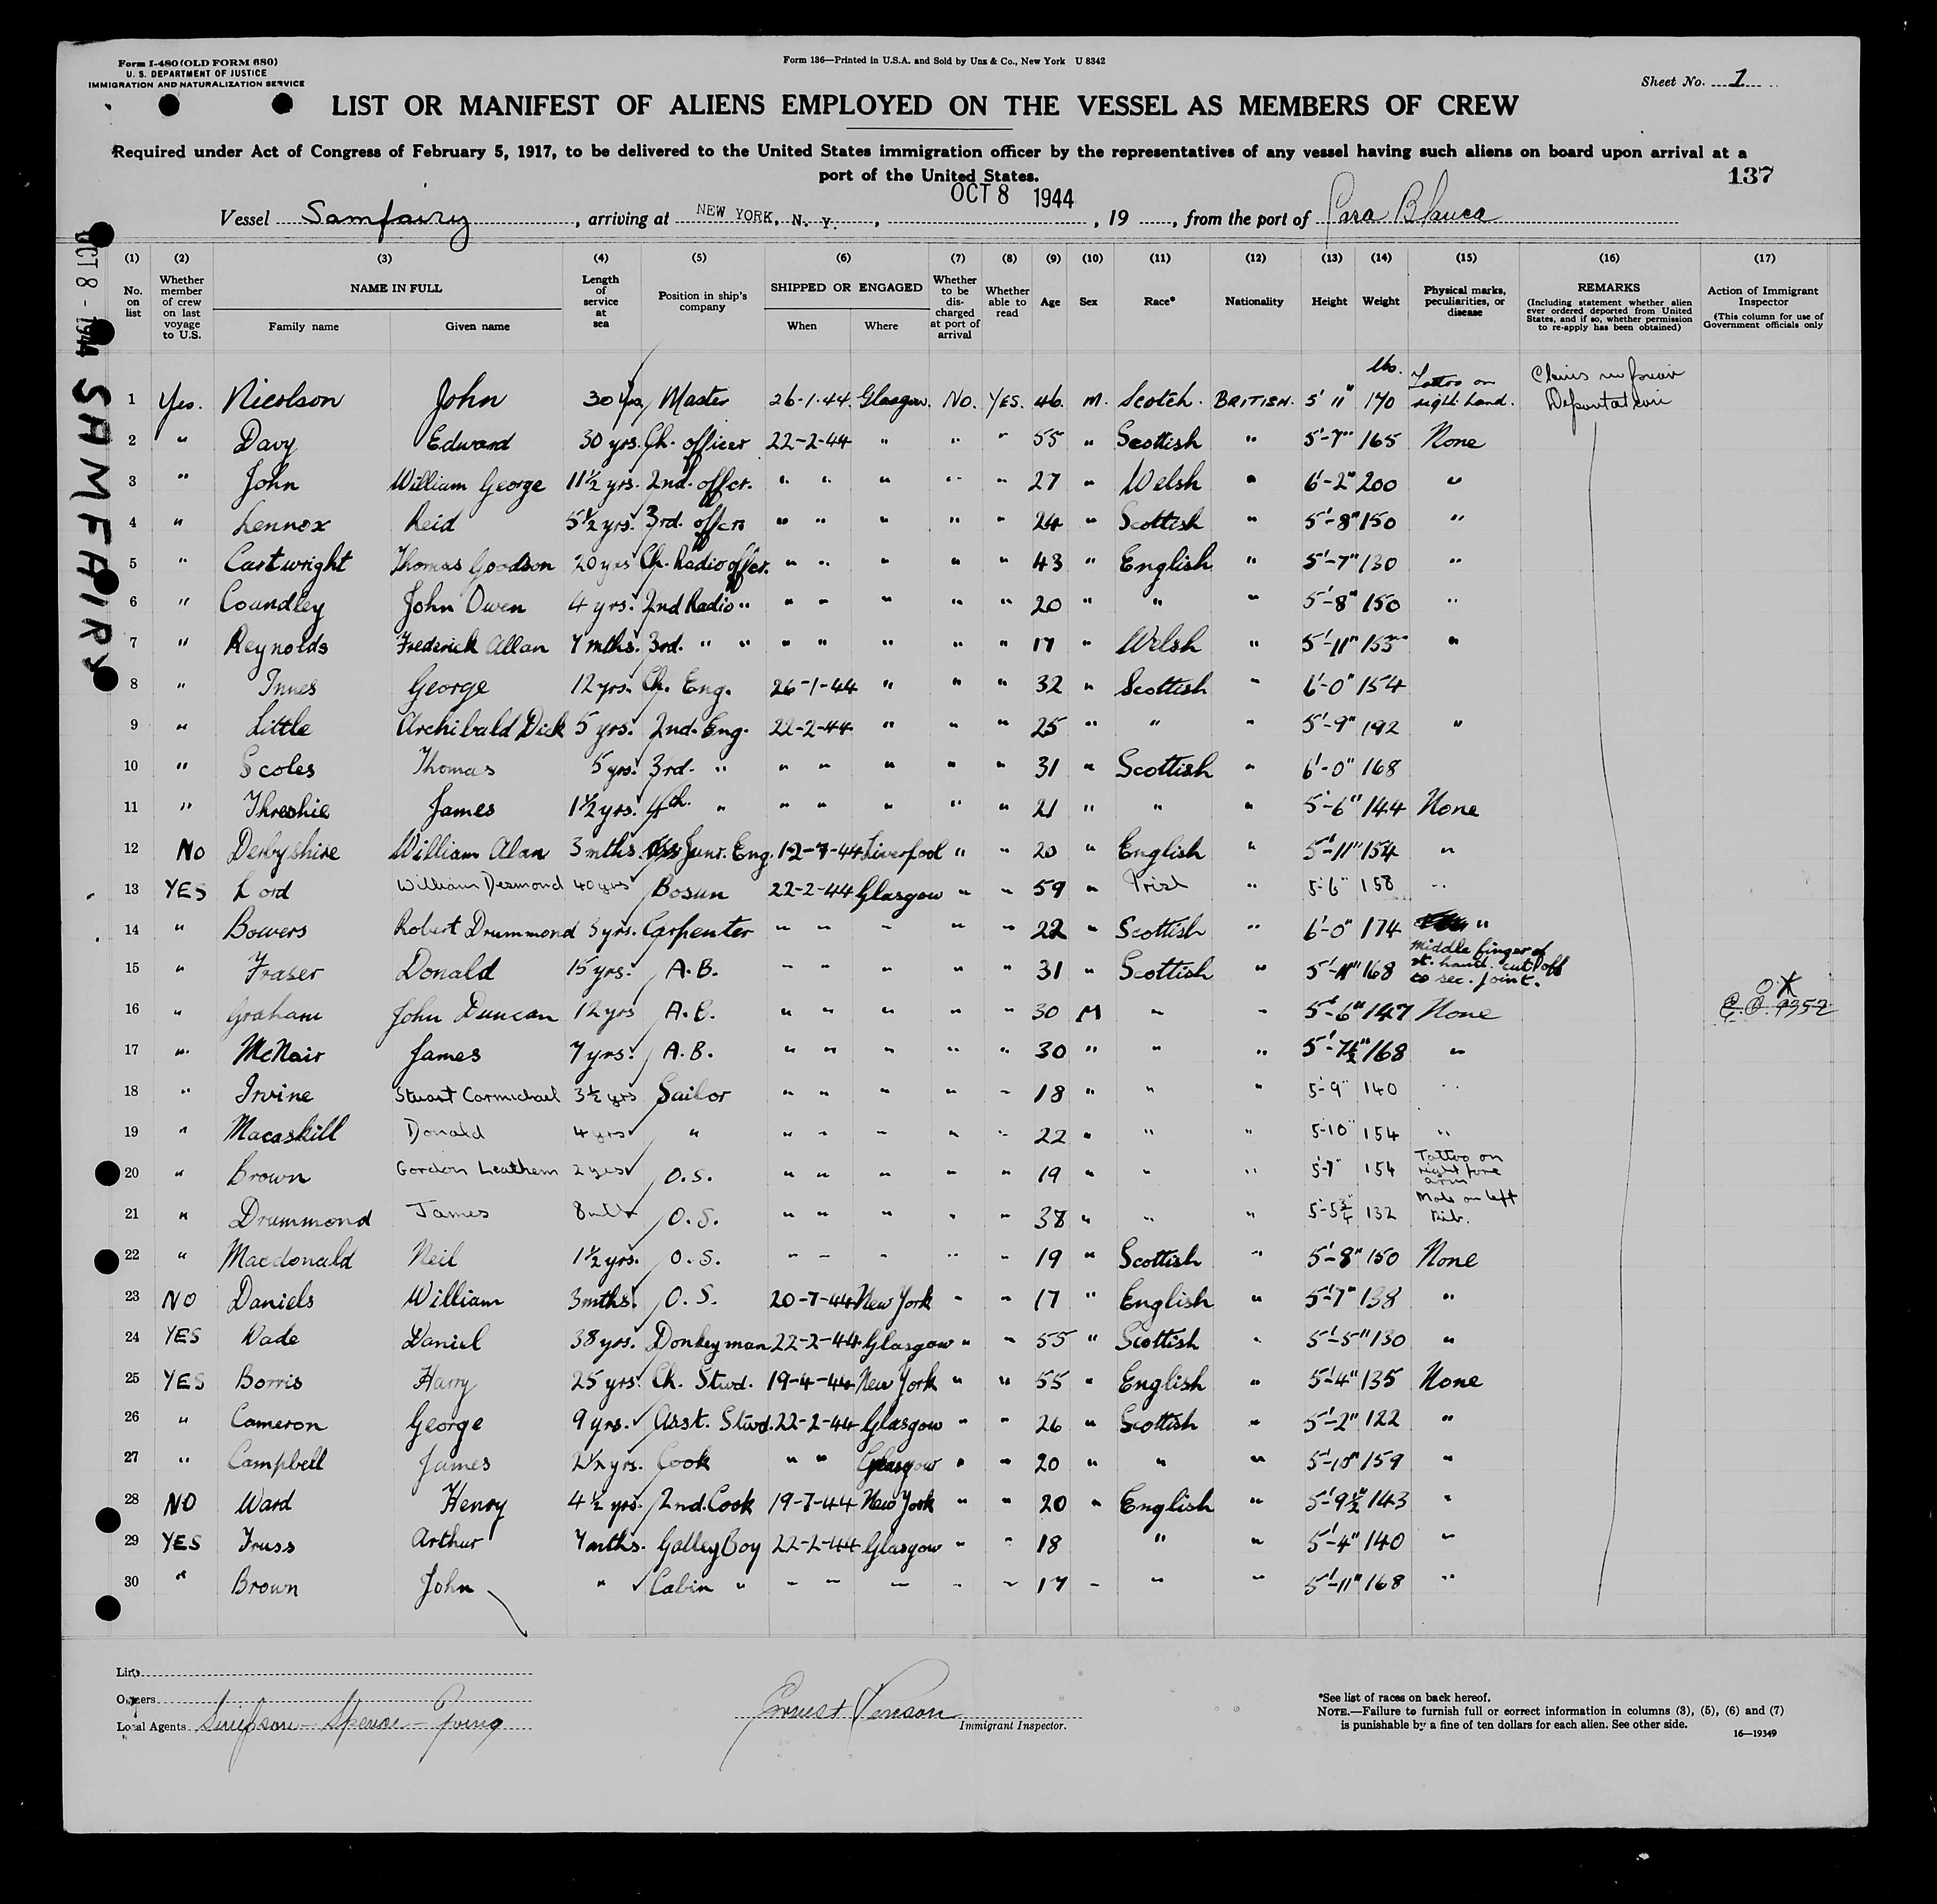 Form I-480 (OLD FORM 680)
U. S. DEPARTMENT OF JUSTICE
IMMIGRATION AND NATURALIZATION SERVICE
Form 136—Printed in U.S.A. and Sold by Unz & Co., New York U 8342
Sheet No. 1
LIST OR MANIFEST OF ALIENS EMPLOYED ON THE VESSEL AS MEMBERS OF CREW
Required under Act of Congress of February 5, 1917, to be delivered to the United States immigration officer by the representatives of any vessel having such aliens on board upon arrival at a
port of the United States.
137
Vessel Samfairy, arriving at NEW YORK, N. Y., OCT 8 1944, 19, from the port of Blanca
OCT 8 - 1944 SAMFAIRY
(1) (2) (3) (4) (5) (6) (7) (8) (9) (10) (11) (12) (13) (14) (15) (16) (17)
No. on list
Whether member of crew on last voyage to U.S.
NAME IN FULL
Family name Given name
Length of service at sea
Position in ship's company
SHIPPED OR ENGAGED
When Where
Whether to be discharged at port of arrival
Whether able to read
Age
Sex
Race*
Nationality
Height
Weight
Physical marks, peculiarities, or disease
REMARKS
(Including statement whether alien ever ordered deported from United States, and if so, whether permission to re-apply has been obtained)
Action of Immigrant Inspector
(This column for use of Government officials only
lbs.
1 Yes. Nicolson John 30 yrs Master 26-1-44 Glasgow. No. YES. 46. M. Scotch. BRITISH. 5' 11" 170 Tattoo on right hand. Claims no prior Deportation
2 " Davy Edward 30 yrs. Ch. officer 22-2-44 " " " 55 " Scottish " 5'-7" 165 None
3 " John William George 11½ yrs. 2nd. offcr. " " " " " 27 " Welsh " 6'-2" 200 "
4 " Lennox Reid 5½ yrs. 3rd. offcr. " " " " " 24 " Scottish " 5'-8" 150 "
5 " Cartwright Thomas Goodson 20 yrs Ch. Radio offcr. " " " " " 43 " English " 5'-7" 130 "
6 " Coundley John Owen 4 yrs. 2nd Radio " " " " " " 20 " " " 5'-8" 150 "
7 " Reynolds Frederick Allan 7 mths. 3rd. " " " " " " " 17 " Welsh " 5'-11" 153 "
8 " Innes George 12 yrs. Ch. Eng. 26-1-44 " " " 32 " Scottish " 6'-0" 154
9 " Little Archibald Dick 5 yrs. 2nd. Eng. 22-2-44 " " " 25 " " " 5'-9" 192 "
10 " Scoles Thomas 5 yrs. 3rd. " " " " " " 31 " Scottish " 6'-0" 168
11 " Threshie James 1½ yrs. 4th. " " " " " " 21 " " " 5'-6" 144 None
12 No Derbyshire William Alan 3 mths. Junr. Eng. 12-7-44 Liverpool " " 20 " English " 5'-11" 154 "
13 YES Lord William Desmond 40 yrs Bosun 22-2-44 Glasgow " " 59 " Irish " 5'-6" 158 "
14 " Bowers Robert Drummond 3 yrs. Carpenter " " " " " 22 " Scottish " 6'-0" 174 "
15 " Fraser Donald 15 yrs. A.B. " " " " " 31 " Scottish " 5'-11" 168 middle finger of rt. hand. cut off to sec. joint.
16 " Graham John Duncan 12 yrs A.B. " " " " " 30 M " " 5'-6" 147 None O.K E.O. 9352
17 " McNair James 7 yrs. A.B. " " " " " 30 " " " 5'-7½" 168 "
18 " Irvine Stuart Carmichael 3½ yrs Sailor " " " " " 18 " " " 5-9" 140 "
19 " Macaskill Donald 4 yrs " " " " " " 22 " " " 5-10" 154 "
20 " Brown Gordon Leathem 2 yrs O.S. " " " " " 19 " " " 5-7" 154 Tattoo on right fore arm
21 " Drummond James 8 mths O.S. " " " " " 38 " " " 5-5¾" 132 Mole on left Rib.
22 " Macdonald Neil 1½ yrs. O.S. " " " " " 19 " Scottish " 5'-8" 150 None
23 NO Daniels William 3 mths. O.S. 20-7-44 New York " " 17 " English " 5'-7" 138 "
24 YES Wade Daniel 38 yrs. Donkeyman 22-2-44 Glasgow " " 55 " Scottish " 5'-5" 130 "
25 YES Borris Harry 25 yrs. Ch. Stwd. 19-4-44 New York " " 55 " English " 5'-4" 135 None
26 " Cameron George 9 yrs. Asst. Stwd. 22-2-44 Glasgow " " 26 " Scottish " 5'-2" 122 "
27 " Campbell James 2½ yrs. Cook " " Glasgow " " 20 " " " 5'-10" 159 "
28 NO Ward Henry 4½ yrs. 2nd. Cook 19-7-44 New York " " 20 " English " 5'-9½" 143 "
29 YES Truss Arthur 7 mths. Galley Boy 22-2-44 Glasgow " " 18 " " 5'-4" 140 "
30 " Brown John " Cabin " " " " " " 17 " " " 5'-11" 168 "
Line
Owners
Local Agents Simpson - Spence - Young
Immigrant Inspector.
*See list of races on back hereof.
NOTE.—Failure to furnish full or correct information in columns (3), (5), (6) and (7)
is punishable by a fine of ten dollars for each alien. See other side.
16—19349